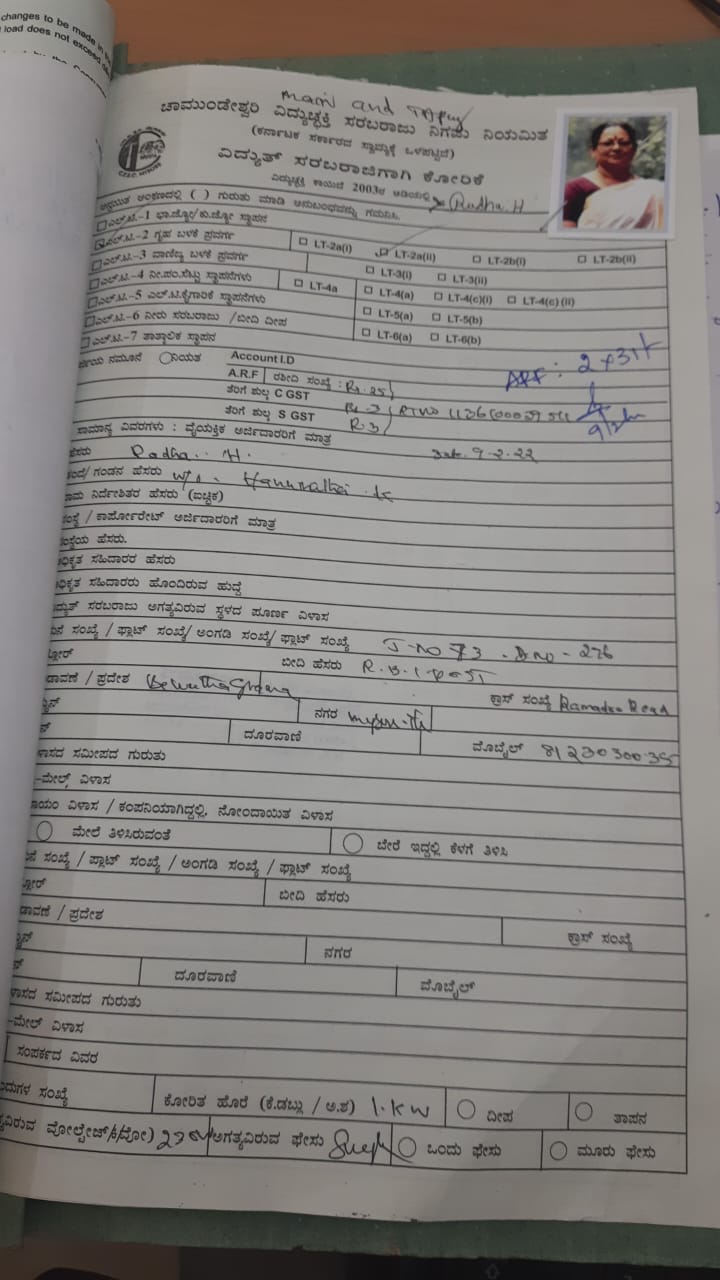 changes to be made in
load does not exceed
main and
ಚಾಮುಂಡೇಶ್ವರಿ ವಿದ್ಯುಚ್ಛಕ್ತಿ ಸರಬರಾಜು ನಿಗಮ ನಿಯಮಿತ
(ಕರ್ನಾಟಕ ಸರ್ಕಾರದ ಸ್ವಾಮ್ಯಕ್ಕೆ ಒಳಪಟ್ಟಿದೆ)
ವಿದ್ಯುತ್ ಸರಬರಾಜಿಗಾಗಿ ಕೋರಿಕೆ
ವಿದ್ಯುಚ್ಛಕ್ತಿ ಕಾಯಿದೆ 2003ರ ಅಡಿಯಲ್ಲಿ Radha.H
ಅಂಕಣದಲ್ಲಿ ( ) ಗುರುತು ಮಾಡಿ ಅನುಬಂಧವನ್ನು ಗಮನಿಸಿ.
ಎಲ್.ಟಿ.-1 ಭಾ.ಜ್ಯೋ/ಕು.ಜ್ಯೋ ಸ್ಥಾಪನ
ಎಲ್.ಟಿ.-2 ಗೃಹ ಬಳಕೆ ಪ್ರವರ್ಗ LT-2a(i) LT-2a(ii) LT-2b(i) LT-2b(ii)
ಎಲ್.ಟಿ.-3 ವಾಣಿಜ್ಯ ಬಳಕೆ ಪ್ರವರ್ಗ LT-3(i) LT-3(ii)
ಎಲ್.ಟಿ.-4 ನೀ.ಪಂ.ಸೆಟ್ಟು ಸ್ಥಾಪನೆಗಳು LT-4a LT-4(a) LT-4(c)(i) LT-4(c)(ii)
ಎಲ್.ಟಿ.-5 ಎಲ್.ಟಿ.ಕೈಗಾರಿಕೆ ಸ್ಥಾಪನೆಗಳು LT-5(a) LT-5(b)
ಎಲ್.ಟಿ.-6 ನೀರು ಸರಬರಾಜು /ಬೀದಿ ದೀಪ LT-6(a) LT-6(b)
ಎಲ್.ಟಿ.-7 ತಾತ್ಕಾಲಿಕ ಸ್ಥಾಪನ
ನಮೂನೆ ನಿಯತ Account I.D
A.R.F ರಶೀದಿ ಸಂಖ್ಯೆ : Rs. 25/
ತೆರಿಗೆ ಶುಲ್ಕ C GST
ತೆರಿಗೆ ಶುಲ್ಕ S GST R.3/
ಸಾಮಾನ್ಯ ವಿವರಗಳು : ವೈಯಕ್ತಿಕ ಅರ್ಜಿದಾರರಿಗೆ ಮಾತ್ರ
ಹೆಸರು Radha. H. Date. 9-2-22
ಗಂಡನ ಹೆಸರು w/o.
ನಿರ್ದೇಶಿತರ ಹೆಸರು (ಐಚ್ಛಿಕ)
ಸಂಸ್ಥೆ / ಕಾರ್ಪೋರೇಟ್ ಅರ್ಜಿದಾರರಿಗೆ ಮಾತ್ರ
ಸಂಸ್ಥೆಯ ಹೆಸರು.
ಧಿಕೃತ ಸಹಿದಾರರ ಹೆಸರು
ಧಿಕೃತ ಸಹಿದಾರರು ಹೊಂದಿರುವ ಹುದ್ದೆ
ದ್ಯುತ್ ಸರಬರಾಜು ಅಗತ್ಯವಿರುವ ಸ್ಥಳದ ಪೂರ್ಣ ವಿಳಾಸ
ನೆ ಸಂಖ್ಯೆ / ಫ್ಲಾಟ್ ಸಂಖ್ಯೆ/ ಅಂಗಡಿ ಸಂಖ್ಯೆ/ ಫ್ಲಾಟ್ ಸಂಖ್ಯೆ J-NO 73 . DNO - 276
ಲೋರ್ ಬೀದಿ ಹೆಸರು
ಡಾವಣೆ / ಪ್ರದೇಶ ಕ್ರಾಸ್ ಸಂಖ್ಯೆ Road
ನಗರ
ದೂರವಾಣಿ ಮೊಬೈಲ್ 8123030035
ಳಾಸದ ಸಮೀಪದ ಗುರುತು
-ಮೇಲ್ ವಿಳಾಸ
ಾಯಂ ವಿಳಾಸ / ಕಂಪನಿಯಾಗಿದ್ದಲ್ಲಿ, ನೋಂದಾಯಿತ ವಿಳಾಸ
ಮೇಲೆ ತಿಳಿಸಿರುವಂತೆ ಬೇರೆ ಇದ್ದಲ್ಲಿ ಕೆಳಗೆ ತಿಳಿಸಿ
ನೆ ಸಂಖ್ಯೆ / ಪ್ಲಾಟ್ ಸಂಖ್ಯೆ / ಅಂಗಡಿ ಸಂಖ್ಯೆ / ಫ್ಲಾಟ್ ಸಂಖ್ಯೆ
ಲೋರ್ ಬೀದಿ ಹೆಸರು
ಡಾವಣೆ / ಪ್ರದೇಶ ಕ್ರಾಸ್ ಸಂಖ್ಯೆ
ನಗರ
ದೂರವಾಣಿ ಮೊಬೈಲ್
ಳಾಸದ ಸಮೀಪದ ಗುರುತು
-ಮೇಲ್ ವಿಳಾಸ
ಸಂಪರ್ಕದ ವಿವರ
ಸಂಖ್ಯೆ ಕೋರಿತ ಹೊರೆ (ಕೆ.ಡಬ್ಲು / ಅ.ಶ) 1.KW ದೀಪ ತಾಪನ
ವೋಲ್ಟೇಜ್ ಅಗತ್ಯವಿರುವ ಫೇಸು ಒಂದು ಫೇಸು ಮೂರು ಫೇಸು